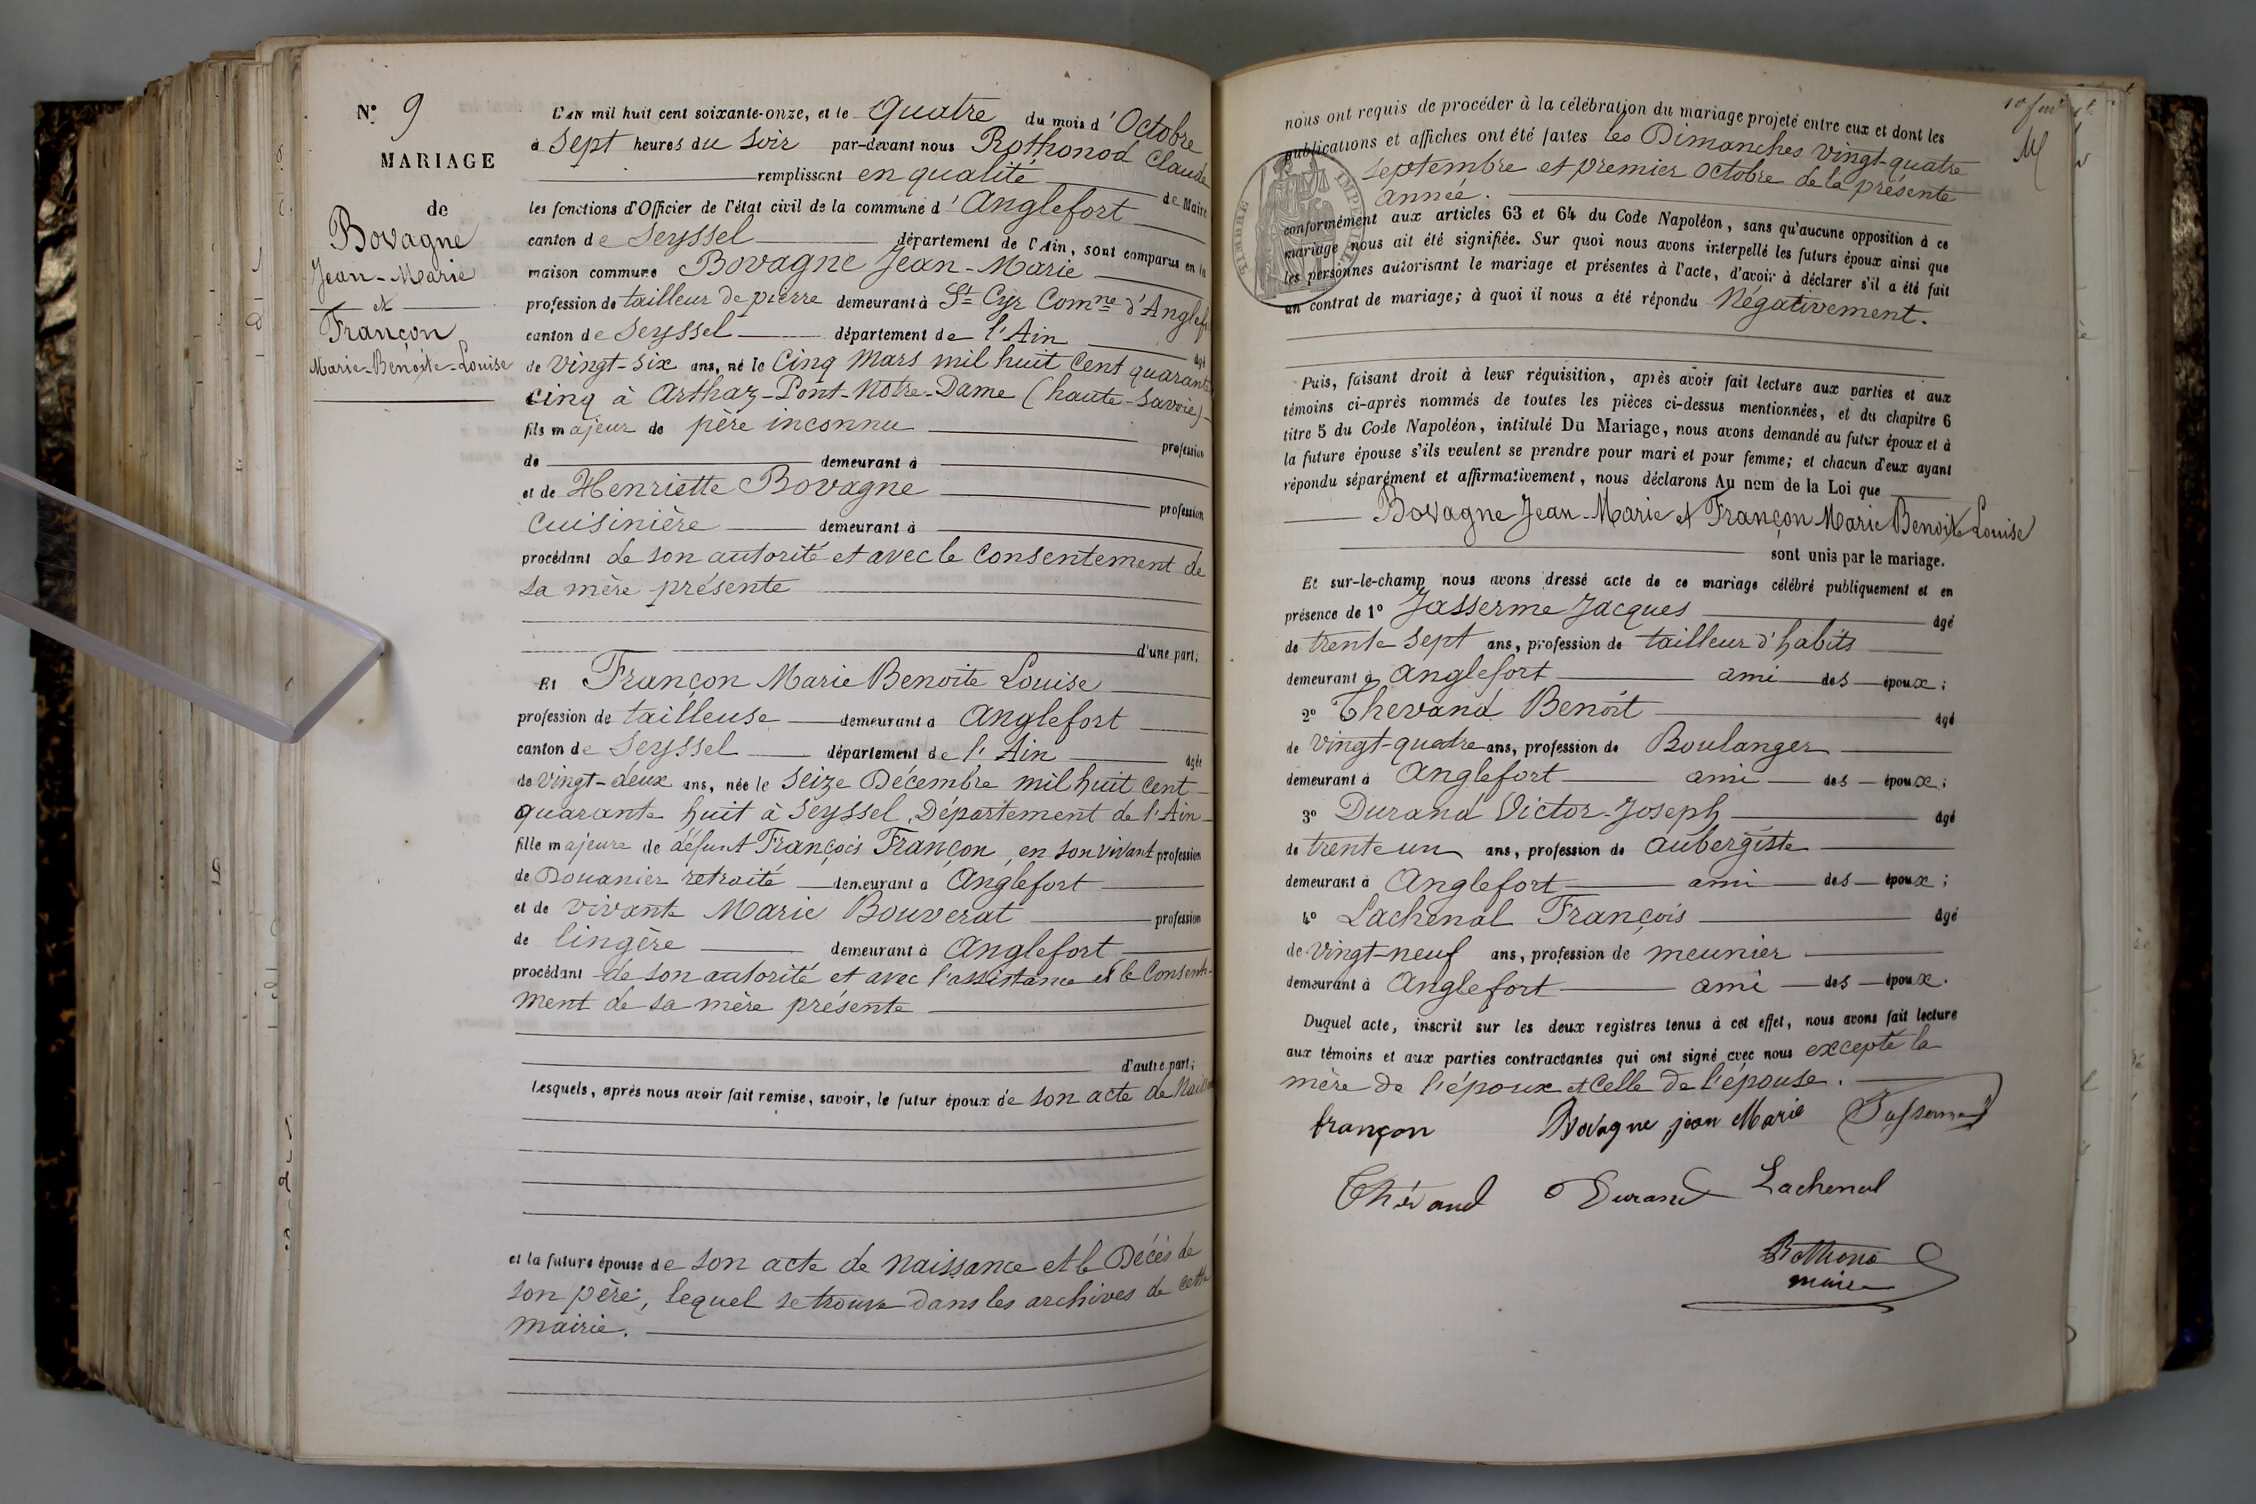 N° 9
MARIAGE
de
Bovagne
Jean-Marie
et
Françon
Marie-Benoite-Louise
L'AN mil huit cent soixante-onze, et le quatre du mois d'Octobre
à Sept heures du Soir par-devant nous Rothonod Claude
remplissant en qualité de Maire
les fonctions d'Officier de l'état civil de la commune d'Anglefort
canton de Seyssel département de l'Ain, sont comparus en la
maison commune Bovagne Jean-Marie
profession de tailleur de pierre demeurant à St Cyr Comne d'Anglef
canton de Seyssel département de l'Ain âgé
de vingt-six ans, né le Cinq Mars mil huit Cent quarante
cinq à Arthaz-Pont-Notre-Dame (haute-Savoie)
fils majeur de père inconnu profession
de demeurant à
et de Henriette Bovagne profession
Cuisinière demeurant à
procédant de son autorité et avec le Consentement de
sa mère présente
d'une part;
Et Françon Marie Benoite Louise
profession de tailleuse demeurant à Anglefort
canton de Seyssel département de l'Ain âgée
de vingt-deux ans, née le Seize Décembre mil huit cent
quarante huit à Seyssel, Département de l'Ain
fille majeure de défunt François Françon, en son vivant profession
de Douanier retraité demeurant à Anglefort
et de vivante Marie Bouverat profession
de lingère demeurant à Anglefort
procédant de son autorité et avec l'assistance et le Consente-
ment de sa mère présente
d'autre part;
Lesquels, après nous avoir fait remise, savoir, le futur époux de son acte de
et la future épouse de son acte de naissance et le Décés de
son père, lequel se trouve dans les archives de cette
mairie.
nous ont requis de procéder à la célébration du mariage projeté entre eux et dont les
publications et affiches ont été faites les Dimanches Vingt-quatre
septembre et premier Octobre de la présente
année.
TIMBRE IMPERIAL
conformément aux articles 63 et 64 du Code Napoléon, sans qu'aucune opposition à ce
mariage nous ait été signifiée. Sur quoi nous avons interpellé les futurs époux ainsi que
les personnes autorisant le mariage et présentes à l'acte, d'avoir à déclarer s'il a été fait
un contrat de mariage; à quoi il nous a été répondu Négativement.
Puis, faisant droit à leur réquisition, après avoir fait lecture aux parties et aux
témoins ci-après nommés de toutes les pièces ci-dessus mentionnées, et du chapitre 6
titre 5 du Code Napoléon, intitulé Du Mariage, nous avons demandé au futur époux et à
la future épouse s'ils veulent se prendre pour mari et pour femme; et chacun d'eux ayant
répondu séparément et affirmativement, nous déclarons Au nom de la Loi que
Bovagne Jean-Marie et Françon Marie Benoite Louise
sont unis par le mariage.
Et sur-le-champ nous avons dressé acte de ce mariage célébré publiquement et en
présence de 1° Jasserme Jacques âgé
de trente sept ans, profession de tailleur d'habits
demeurant à Anglefort ami des époux;
2° Thevand Benoît âgé
de vingt-quatre ans, profession de Boulanger
demeurant à Anglefort ami des époux;
3° Durand Victor-Joseph âgé
de trente un ans, profession de aubergiste
demeurant à Anglefort ami des époux;
4° Lachenal François âgé
de vingt-neuf ans, profession de meunier
demeurant à Anglefort ami des époux.
Duquel acte, inscrit sur les deux registres tenus à cet effet, nous avons fait lecture
aux témoins et aux parties contractantes qui ont signé avec nous excepté la
mère de l'époux et Celle de l'épouse.
françon Bovagne jean Marie
Thévand Durand Lachenal
maire